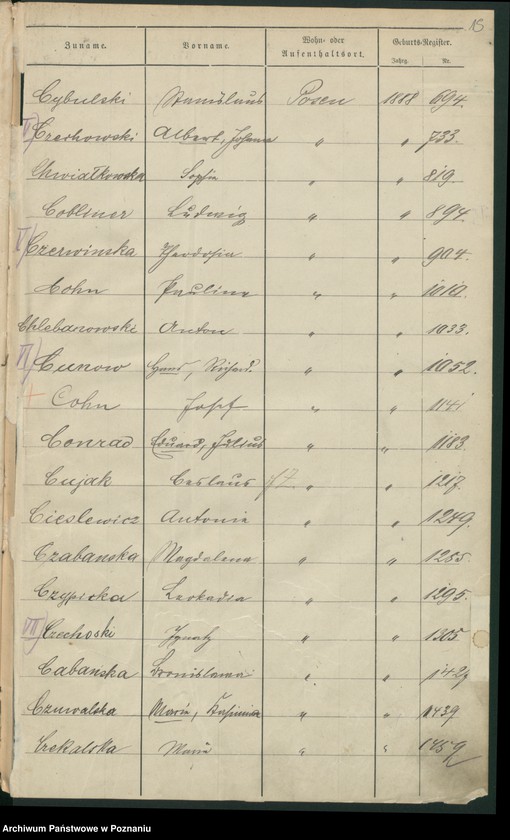 15
Zuname. Vorname. Wohn- oder Aufenthaltsort. Geburts-Register.
Jahrg. Nr.
Cybulski Stanislaus Posen 1888 694.
Czechowski Albert, Johann " " 733.
Chwiałkowska Sophie " " 819.
Cobliner Ludwig " " 894.
Czerwinska Theodosia " " 904.
Cohn Pauline " " 1010.
Chlebanowski Anton " " 1033.
VI) Cunow Hans, Richard " " 1052.
Cohn Josef " "
Conrad Eduard, Julius " " 1183.
Cujak Ceslaus " " 1217.
Cieslewicz Antonie " " 1249.
Czabanska Magdalena " " 1255.
Czypicka Leokadia " " 1295.
VII) Czechoski Ignatz " " 1305
Cabanska Bronislawa " " 1429
Czuwalska Maria, Kasimira " " 1439
Czekalska Marie " " 1459
Archiwum Państwowe w Poznaniu